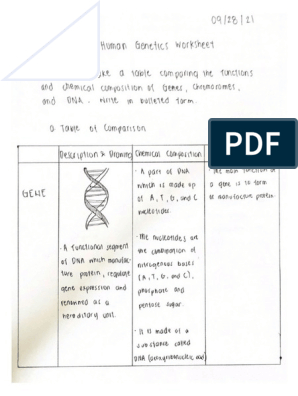 09/28/21
Human Genetics Worksheet
ke a table comparing the functions
and chemical composition of Genes, Chromosomes,
and DNA. Write in bulleted form.
a Table of Comparison
Description & Drawing
Chemical Composition
GENE
· A functional segment
of DNA which manufac-
ture protein, regulate
gene expression and
renamed as a
hereditary unit.
· A part of DNA
which is made up
of A, T, G, and C
nucleotides.
· The nucleotides are
the combination of
nitrogenous bases
(A, T, G, and C),
phosphate and
pentose sugar.
· It is made of a
substance called
DNA (deoxyribonucleic acid)
The main function of
a gene is to form
or manufacture protein.
PDF